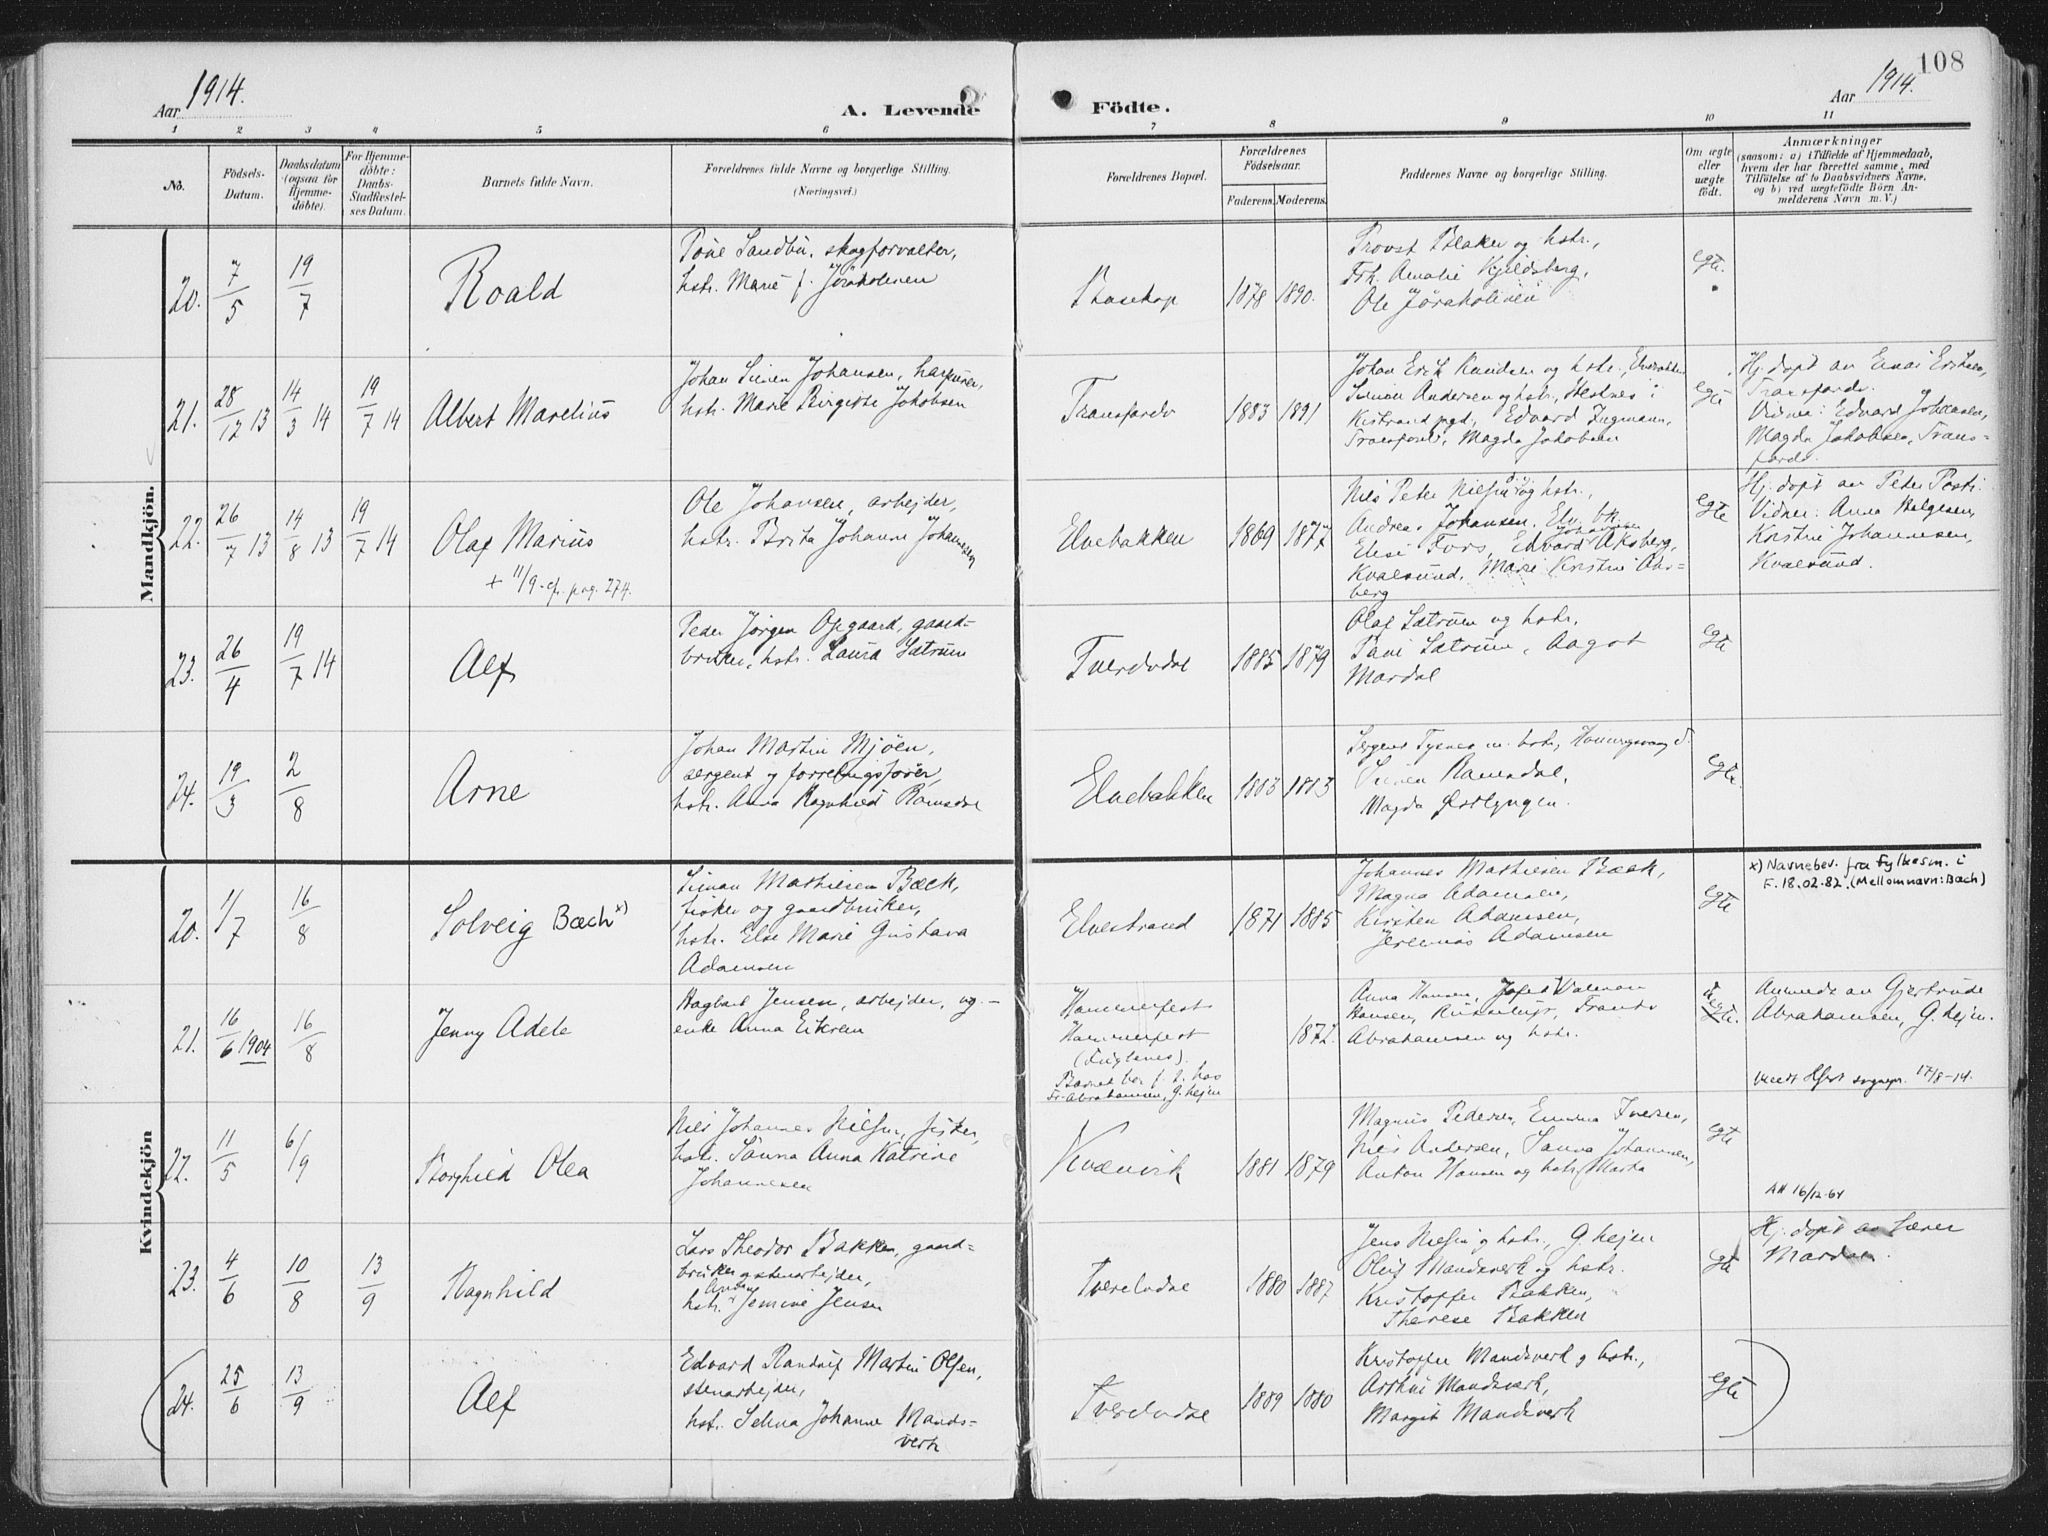 108
Aar 1914.
A. Levende Födte.
Aar 1914.
1 2 3 4 5 6 7 8 9 10 11
No.
Födsels-
Datum.
Daabsdatum
(ogsaa for
Hjemme-
döbte).
For Hjemme-
döbte:
Daabs-
Stadfæstel-
ses Datum.
Barnets fulde Navn.
Forældrenes fulde Navne og borgerlige Stilling.
(Næringsvei.)
Forældrenes Bopæl.
Forældrenes
Födselsaar.
Faderens.
Moderens.
Faddernes Navne og borgerlige Stilling.
Om ægte
eller
uægte
födt.
Anmærkninger
(saasom: a) i Tilfælde af Hjemmedaab,
hvem der har forrettet samme, med
Tilföielse af to Daabsvidners Navne,
og b) ved uægtefödte Börn An-
melderens Navn m. V.)
Mandkjön.
20. 7/5 19/7
Roald
Sandbu, skogforvalter,
hstr. Marie f. Jöraholmen
Bosekop
1878 1890.
Provst Blaker og hstr.,
Frk. Amalie Kjeldsberg,
Ole Jöraholmen
egte.
21. 28/12 13 14/3 14 19/7 14
Albert Marelius
Johan Simon Johansen,
hstr. Marie Birgitte Jakobsen
Transfarelv
1883 1891
Johan Erik Knudsen og hstr.,
Simon Andersen og hstr., Hestnes i
Kistrand pgd, Edvard Ingmann,
Magda Jakobsen
egte
Hj. döpt av Eriksen,
Vidner: Edvard Johansen,
Magda Jakobsen, Trans-
22. 26/7 13 14/8 13 19/7 14
Olaf Marius
+ 11/9 - cfr. pag. 274.
Ole Johansen, arbejder,
hstr. Brita Johanne Johannessen
Elvebakken
1869 1877
Nils Peter Nilsen og hstr.,
Andreas Johansen, Elv. bk.
Elise Fors, Edvard Johannsen Aksberg,
Kvalsund, Marie Kristine Aks-
berg
egte
Hj. döpt av Peter
Vidner: Anna Helgesen,
Kristine Johannesen,
Kvalsund.
23. 26/4 19/7 14
Alf
Peder Jörgen Opgaard, gaard-
bruker, hstr. Laura Sætrum
Tverelvdal
1885 1879
Olaf Sætrum og hstr.
Sætrum, Aagot
Mardal
egte
24. 19/3 2/8
Arne
Johan Martin Mjöen,
sergent og forretningsförer,
hstr. Anna Ragnhild Ramsdal
Elvebakken
1883 1883
Sergent Tysnes m. hstr., Honningsvaag
Simon Ramsdal,
Magda Östlyngen.
egte.
Kvindekjön
20. 1/7 16/8
Solveig Bæch x)
Simon Mathiesen Bæck,
fisker og gaardbruker,
hstr. Else Marie Gustava
Adamsen
Elvestrand
1871 1885
Johannes Mathiesen Bæck,
Magna Adamsen,
Kirsten Adamsen,
Jeremias Adamsen
egte
x) Navnebev. fra Fylkesm. i
F. 18.02.82. (Mellomnavn: Bæch)
21. 16/6 1904 16/8
Jenny Adele
Hagbart Jensen, arbejder, og -
enke Anna Eikrem
Hammerfest
Hammerfest
(Fuglenes).
Barnet bor f. t. hos
Fr. Abrahamsen, G. hejen
1872.
Anna Hansen, Josef Valeman
Hansen, Frants
Abrahamsen og hstr.
uegte.
Anmeldt av Gjertrude
Abrahamsen, G. hejen.
meldt Hfest sognepr. 17/8-14.
22. 11/5 6/9
Borghild Olea
Nils Johannes Nilsen, fisker,
hstr. Sanna Anna Katrine
Johannesen
Kvænvik
1881 1879
Magnus Pedersen, Emma Iversen,
Nils Andersen, Sanna Johannsen,
Anton Hansen og hstr. Marta
egte
Att 16/12-64
23. 4/6 10/8 13/9
Ragnhild
Lars Theodor Bakken, gaard-
bruker og stenarbejder,
hstr. Anna Jensine Jensen
Tverelvdal
1880 1887
Jens Nilsen og hstr., G. hejen
Oluf Mandsverk og hstr.
Kristoffer Bakken,
Therese Bakken
egte
Hj. döpt av Lærer
Mardal.
24. 25/6 13/9
Alf
Edvard Randulf Martin Olsen,
stenarbejder,
hstr. Selma Johanne Mands-
verk
Tverelvdal
1889 1880
Kristoffer Mandsverk og hstr.,
Arthur Mandsverk,
Margit Mandsverk
egte